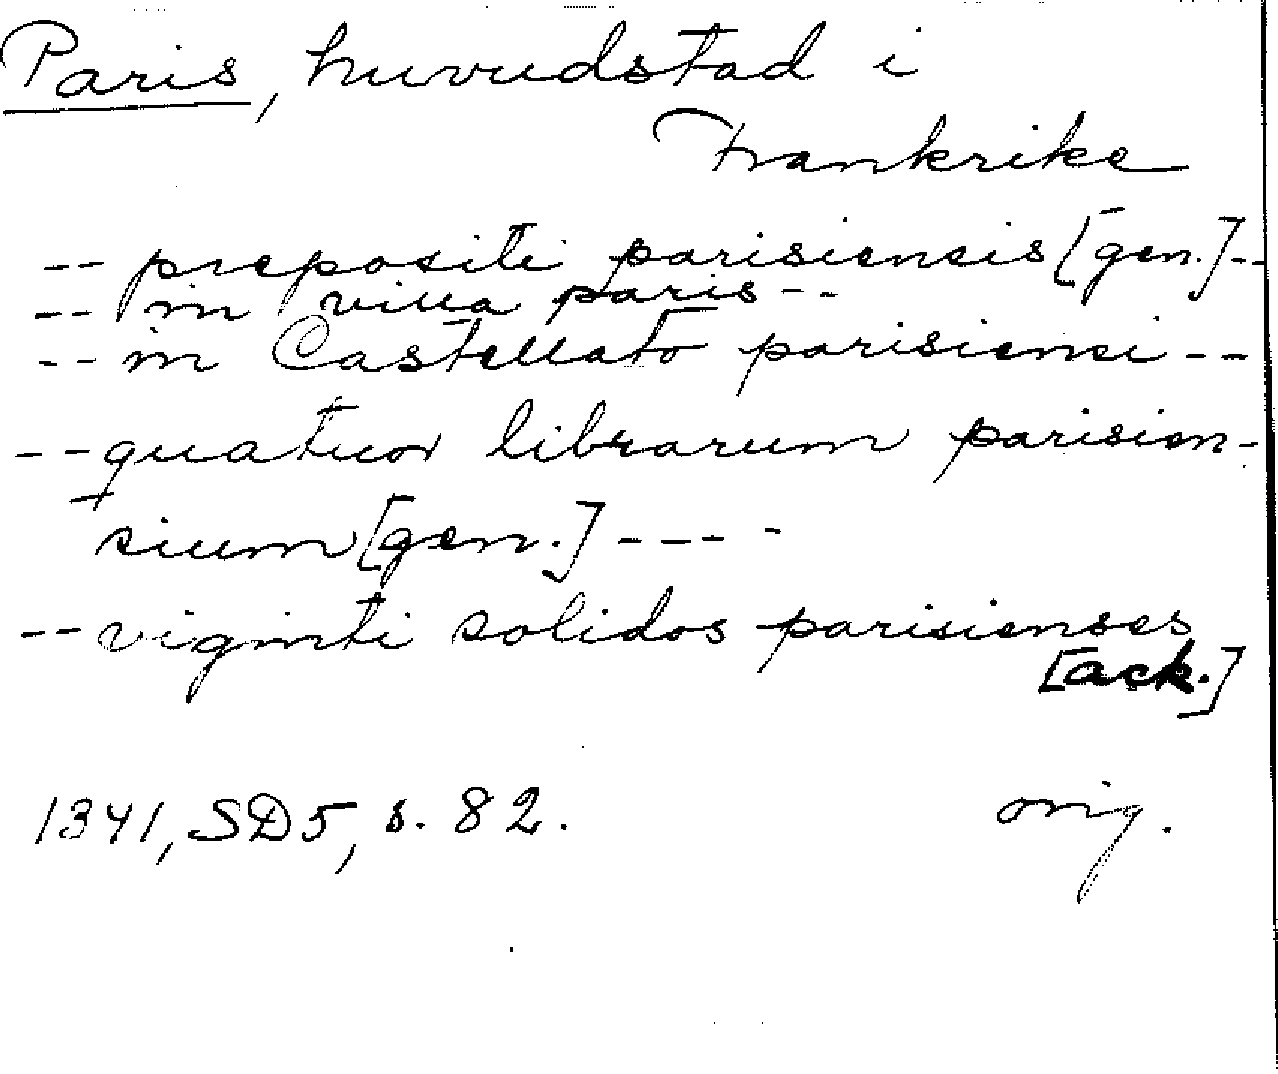 Paris, huvudstad i
Frankrike
-- prepositi parisiensis [gen.] --
-- in villa paris --
-- in Castellato parisiensi --
-- quatuor librarum parisien-
sium [gen.] ----
-- viginti solidos parisienses
[ack.]
1341, SD5, s. 82. orig.